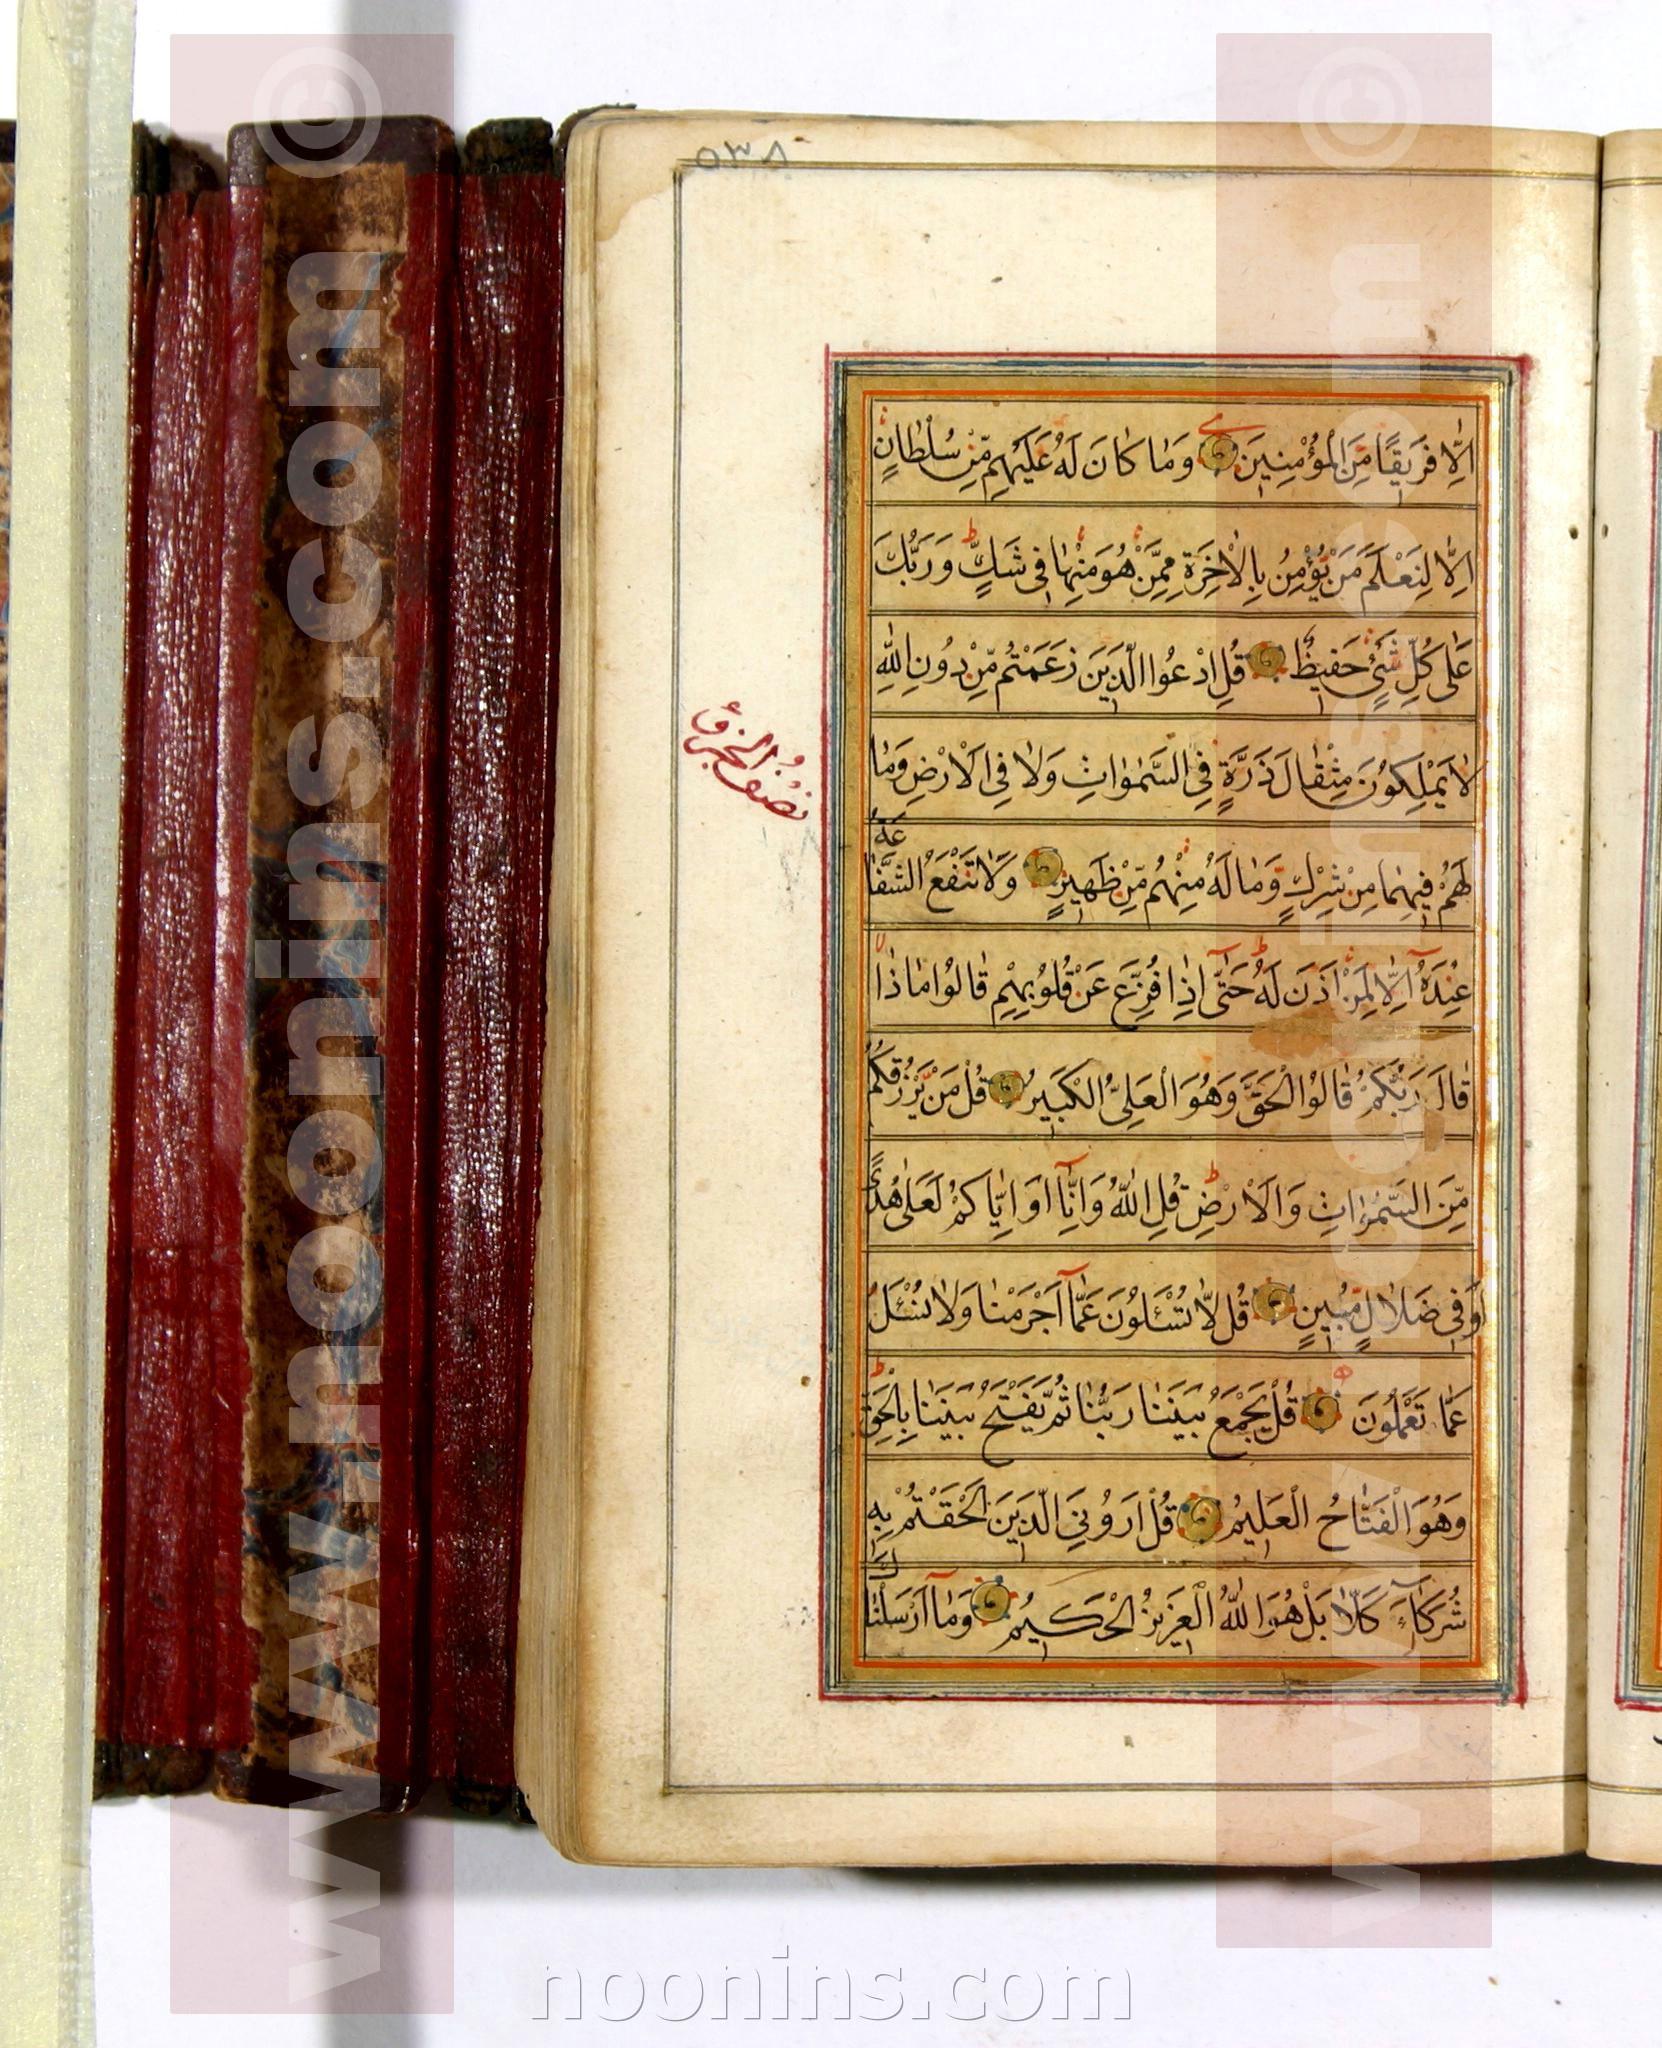 ٥٣٨
اِلّا فَرِيقًا مِنَ الْمُؤْمِنِينَ وَمٰا كٰانَ لَهُ عَلَيْهِمْ مِّنْ سُلْطٰانٍ
اِلّا لِنَعْلَمَ مَنْ يُؤْمِنُ بِالْاٰخِرَةِ مِمَّنْ هُوَ مِنْهٰا فِى شَكٍّ وَرَبُّكَ
عَلٰى كُلِّ شَىْءٍ حَفِيظٌ قُلِ ادْعُوا الَّذِينَ زَعَمْتُمْ مِّنْ دُونِ اللّٰهِ
لٰا يَمْلِكُونَ مِثْقٰالَ ذَرَّةٍ فِى السَّمٰوٰاتِ وَلٰا فِى الْاَرْضِ وَمٰا
لَهُمْ فِيهِمٰا مِنْ شِرْكٍ وَّمٰا لَهُ مِنْهُمْ مِّنْ ظَهِيرٍ وَلٰا تَنْفَعُ الشَّفٰاعَةُ
عِنْدَهُ اِلّٰا لِمَنْ اَذِنَ لَهُ حَتّٰى اِذٰا فُزِّعَ عَنْ قُلُوبِهِمْ قٰالُوا مٰا ذٰا
قٰالَ رَبُّكُمْ قٰالُوا الْحَقَّ وَهُوَ الْعَلِىُّ الْكَبِيرُ قُلْ مَنْ يَرْزُقُكُمْ
مِّنَ السَّمٰوٰاتِ وَالْاَرْضِ قُلِ اللّٰهُ وَاِنّٰآ اَوْ اِيّٰاكُمْ لَعَلٰى هُدًى
اَوْ فِى ضَلٰالٍ مُّبِينٍ قُلْ لّٰا تُسْئَلُونَ عَمّٰآ اَجْرَمْنٰا وَلٰا نُسْئَلُ
عَمّٰا تَعْمَلُونَ قُلْ يَجْمَعُ بَيْنَنٰا رَبُّنٰا ثُمَّ يَفْتَحُ بَيْنَنٰا بِالْحَقِّ
وَهُوَ الْفَتّٰاحُ الْعَلِيمُ قُلْ اَرُونِىَ الَّذِينَ اَلْحَقْتُمْ بِهِ
شُرَكٰآءَ كَلّٰا بَلْ هُوَ اللّٰهُ الْعَزِيزُ الْحَكِيمُ وَمٰآ اَرْسَلْنٰاكَ
نصف الجزؤ
www.noonins.com ©
www.noonins.com ©
noonins.com